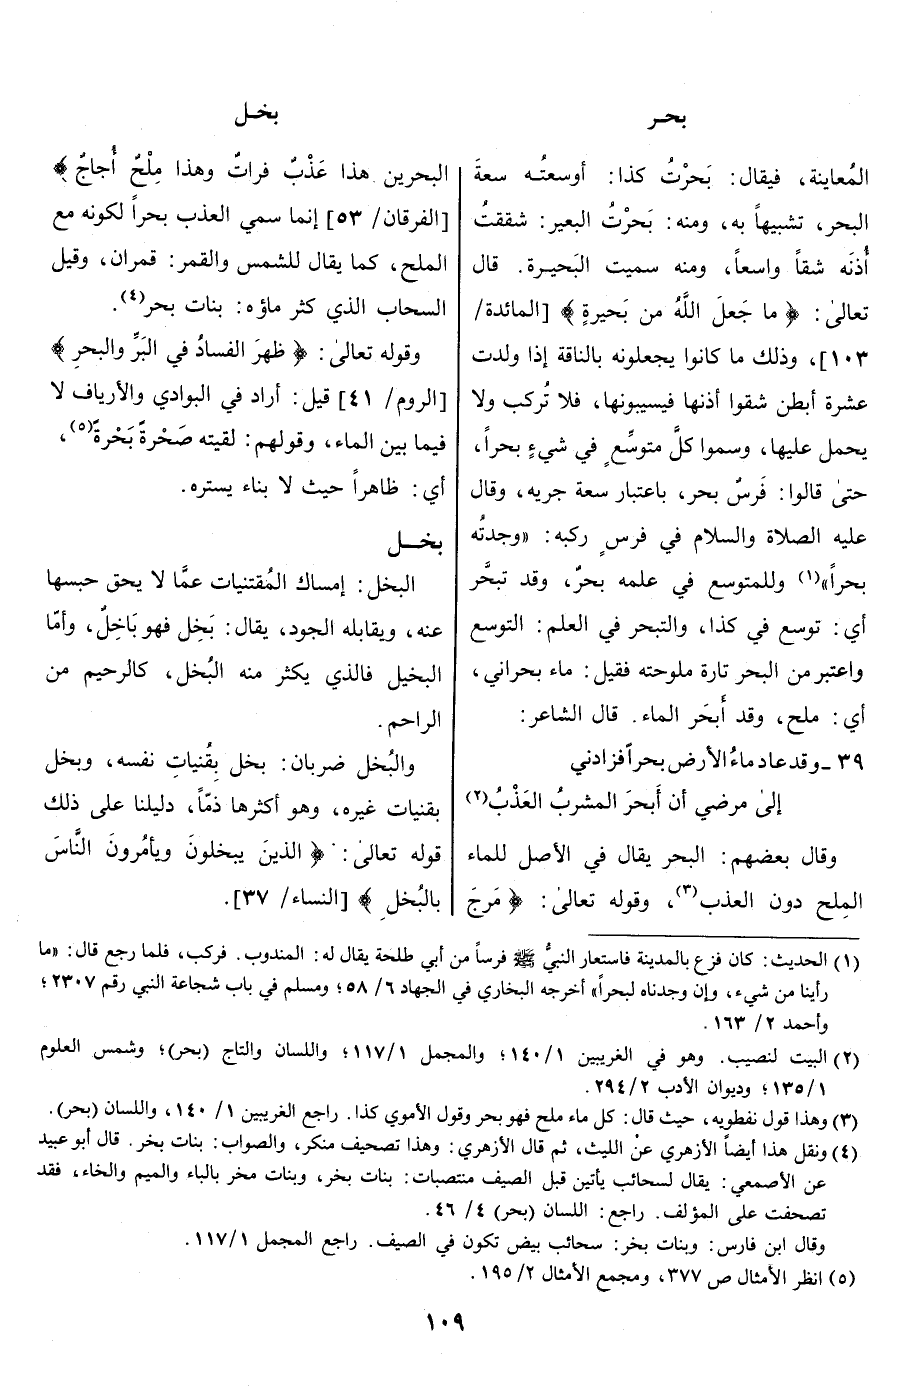 بحر
بخل
المُعاينة، فيقال: بَحَرْتُ كذا: أوسعتُه سعةَ
البحر، تشبيهاً به، ومنه: بَحَرْتُ البعير: شققتُ
أُذنَه شقاً واسعاً، ومنه سميت البَحيرة. قال
تعالىٰ: ﴿ ما جَعلَ اللَّهُ من بَحيرةٍ ﴾ [المائدة/
١٠٣]، وذلك ما كانوا يجعلونه بالناقة إذا ولدت
عشرة أبطن شقوا أذنها فيسيبونها، فلا تُركب ولا
يحمل عليها، وسموا كلَّ متوسِّعٍ في شيءٍ بحراً،
حتىٰ قالوا: فَرسٌ بحر، باعتبار سعة جريه، وقال
عليه الصلاة والسلام في فرسٍ ركبه: «وجدتُه
بحراً»(١) وللمتوسع في علمه بحرٌ، وقد تبحَّر
أي: توسع في كذا، والتبحر في العلم: التوسع
واعتبر من البحر تارة ملوحته فقيل: ماء بحراني،
أي: ملح، وقد أَبحَر الماء. قال الشاعر:
٣٩ ـ وقد عاد ماءُ الأرض بحراً فزادني
إلىٰ مرضي أن أَبحرَ المشربُ العَذْبُ(٢)
وقال بعضهم: البحر يقال في الأصل للماء
المِلح دون العذب(٣)، وقوله تعالىٰ: ﴿ مَرجَ
البحرين هذا عَذْبٌ فراتٌ وهذا مِلْحٌ أُجاجٌ ﴾
[الفرقان/ ٥٣] إنما سمي العذب بحراً لكونه مع
الملح، كما يقال للشمس والقمر: قمران، وقيل
السحاب الذي كثر ماؤه: بنات بحر(٤).
وقوله تعالىٰ: ﴿ ظهرَ الفسادُ في البَرِّ والبحرِ ﴾
[الروم/ ٤١] قيل: أراد في البوادي والأرياف لا
فيما بين الماء، وقولهم: لقيته صَحْرةً بَحْرةً(٥)،
أي: ظاهراً حيث لا بناء يستره.
بخل
البخل: إمساك المُقتنيات عمَّا لا يحق حبسها
عنه، ويقابله الجود، يقال: بَخِل فهو بَاخِلٌ، وأمّا
البخيل فالذي يكثر منه البُخل، كالرحيم من
الراحم.
والبُخل ضربان: بخل بِقُنياتِ نفسه، وبخل
بقنيات غيره، وهو أكثرها ذمّاً، دليلنا على ذلك
قوله تعالىٰ: ﴿ الذينَ يبخلونَ ويأمُرونَ النَّاسَ
بالبُخلِ ﴾ [النساء/ ٣٧].
(١) الحديث: كان فزع بالمدينة فاستعار النبيُّ ﷺ فرساً من أبي طلحة يقال له: المندوب. فركب، فلما رجع قال: «ما
رأينا من شيء، وإن وجدناه لبحراً» أخرجه البخاري في الجهاد ٦/ ٥٨؛ ومسلم في باب شجاعة النبي رقم ٢٣٠٧؛
وأحمد ٢/ ١٦٣.
(٢) البيت لنصيب. وهو في الغريبين ١/ ١٤٠؛ والمجمل ١/ ١١٧؛ واللسان والتاج (بحر)؛ وشمس العلوم
١/ ١٣٥؛ وديوان الأدب ٢/ ٢٩٤.
(٣) وهذا قول نفطويه، حيث قال: كل ماء ملح فهو بحر وقول الأموي كذا. راجع الغريبين ١/ ١٤٠، واللسان (بحر).
(٤) ونقل هذا أيضاً الأزهري عنْ الليث، ثم قال الأزهري: وهذا تصحيف منكر، والصواب: بنات بخر. قال أبو عبيد
عن الأصمعي: يقال لسحائب يأتين قبل الصيف منتصبات: بنات بخر، وبنات مخر بالباء والميم والخاء، فقد
تصحفت على المؤلف. راجع: اللسان (بحر) ٤/ ٤٦.
وقال ابن فارس: وبنات بخر: سحائب بيض تكون في الصيف. راجع المجمل ١/ ١١٧.
(٥) انظر الأمثال ص ٣٧٧، ومجمع الأمثال ٢/ ١٩٥.
١٠٩